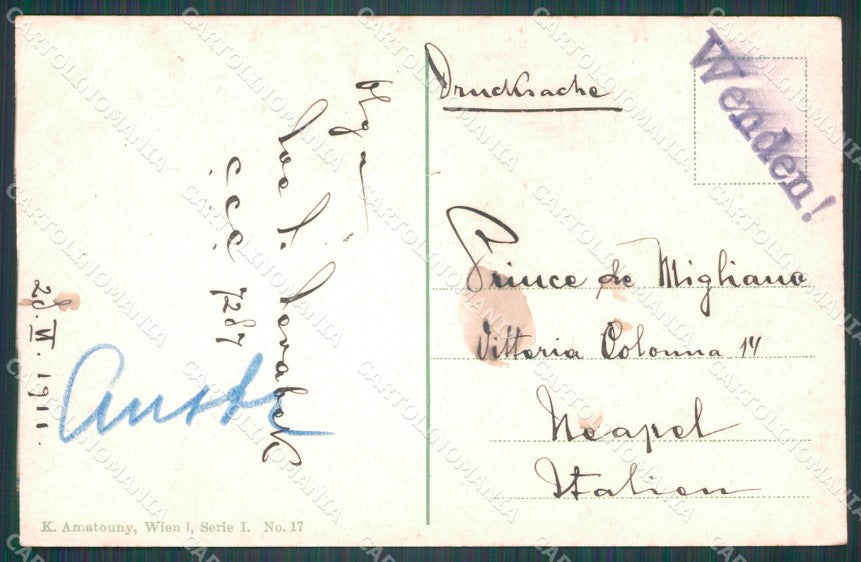 Drucksache
Wenden!
Prince de Migliano
Vittoria Colonna 14
Neapel
Italien
CCC 7287
28.VI.1911.
K. Amatouny, Wien I, Serie I. No. 17
CARTOLINOMANIA